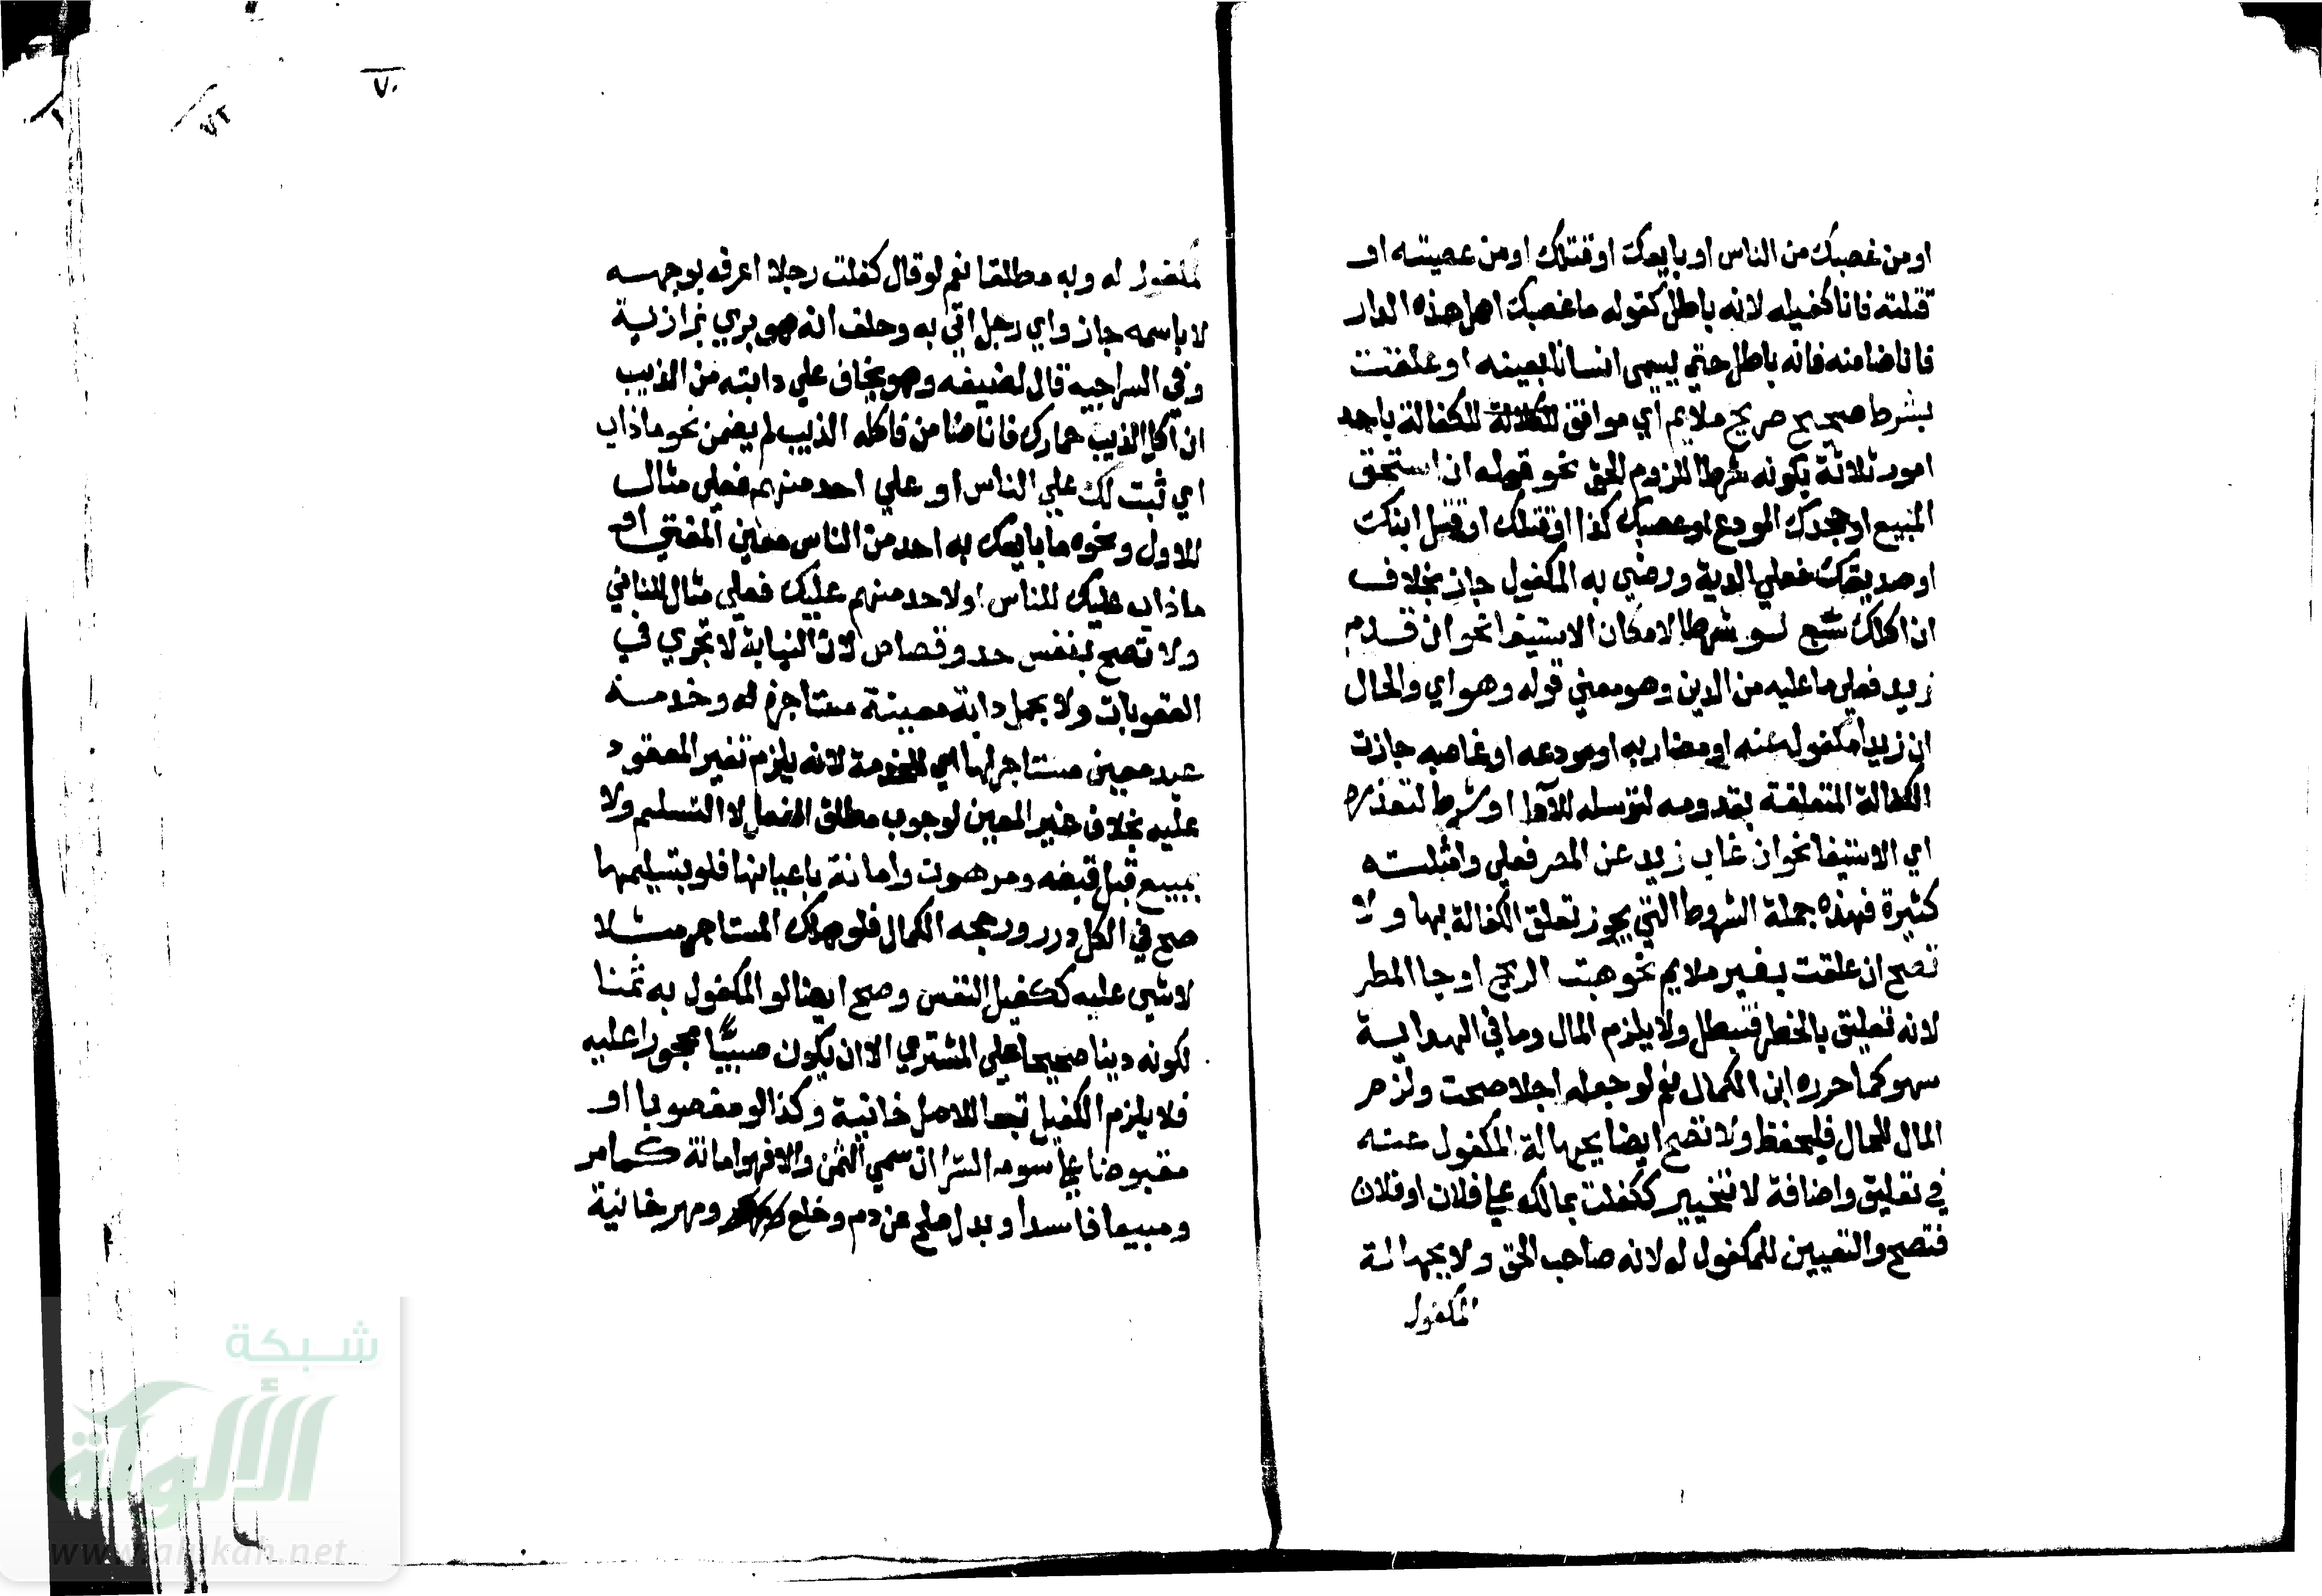 او من غصبك من الناس او بايعك او قتلك او من غصبته او
قتلته فانا كفيله لانه باطل كقوله ما غصبك اهل هذه الدار
فانا ضامنه فانه باطل حتي يسمي انسانا بعينه او علقت
بشرط صحيح صريح ملايم اي موافق للكفالة باحد
امور ثلاثة بكونه شرطا للزوم الحق نحو قوله ان استحق
المبيع او جحدك المودع او غصبك كذا او قتلك او قتل ابنك
او صديقك فعلي الدية ورضي به المكفول جاز بخلاف
ان اكلك سبع او شرطا لامكان الاستيفا نحو ان قدم
زيد فعلي ما عليه من الدين وهو معني قوله وهو اي والحال
ان زيدا مكفول عنه او مضاربه او مودعه او غاصبه جازت
الكفالة المتعلقة بقدومه لتوسله للآدا او شرطا لتعذره
اي الاستيفا نحو ان غاب زيد عن المصر فعلي وامثلته
كثيرة فهذه جملة الشروط التي يجوز تعلق الكفالة بها ولا
تصح ان علقت بغير ملايم نحو هبت الريح او جا المطر
لانه تعليق بالخطر فتبطل ولا يلزم المال وما في الهداية
سهو كما حرره ابن الكمال نعم لو جعله اجلا صحت ولزم
المال للحال فليحفظ ولا تصح ايضا بجهالة المكفول عنه
في تعليق واضافة لا تخيير ككفلت بمالك علي فلان او فلان
فتصح والتعيين للمكفول له لانه صاحب الحق ولا بجهالة
المكفول
٧٠
٧٢
المكفول له وبه مطلقا نعم لو قال كفلت رجلا اعرفه بوجهه
لا باسمه جاز واي رجل اتي به وحلف انه هو بري بزازية
وفي السراجية قال لضيفه وهو يخاف علي دابته من الذيب
ان اكل الذيب حمارك فانا ضامن فاكله الذيب لم يضمن نحو ما ذاب
اي ثبت لك علي الناس او علي احد منهم فعلي مثال
للاول ونحوه ما بايعك به احد من الناس معين المفتي او
ما ذاب عليك للناس او لاحد منهم عليك فعلي مثال للثاني
ولا تصح بنفس حد وقصاص لان النيابة لا تجري في
العقوبات ولا بحمل دابة معينة مستاجرة له وخدمة
عبد معين مستاجر لها اي للخدمة لانه يلزم تغير المعقود
عليه بخلاف غير المعين لوجوب مطلق الفعل لا التسليم ولا
بمبيع قبل قبضه ومرهون وامانة باعيانها فلو بتسليمها
صح في الكل درر ورجحه الكمال فلو هلك المستاجر مثلا
لا شي عليه ككفيل النفس وصح ايضا لو المكفول به ثمنا
لكونه دينا صحيحا علي المشتري الا ان يكون صبيا محجورا عليه
فلا يلزم الكفيل تبعا للاصل خانية وكذا لو مغصوبا او
مقبوضا علي سوم الشرا ان سمي الثمن والا فهو امانة كما مر
ومبيعا فاسدا وبدل صلح عن دم وخلع ومهر خانية
شبكة
الألوكة
www.alukah.net